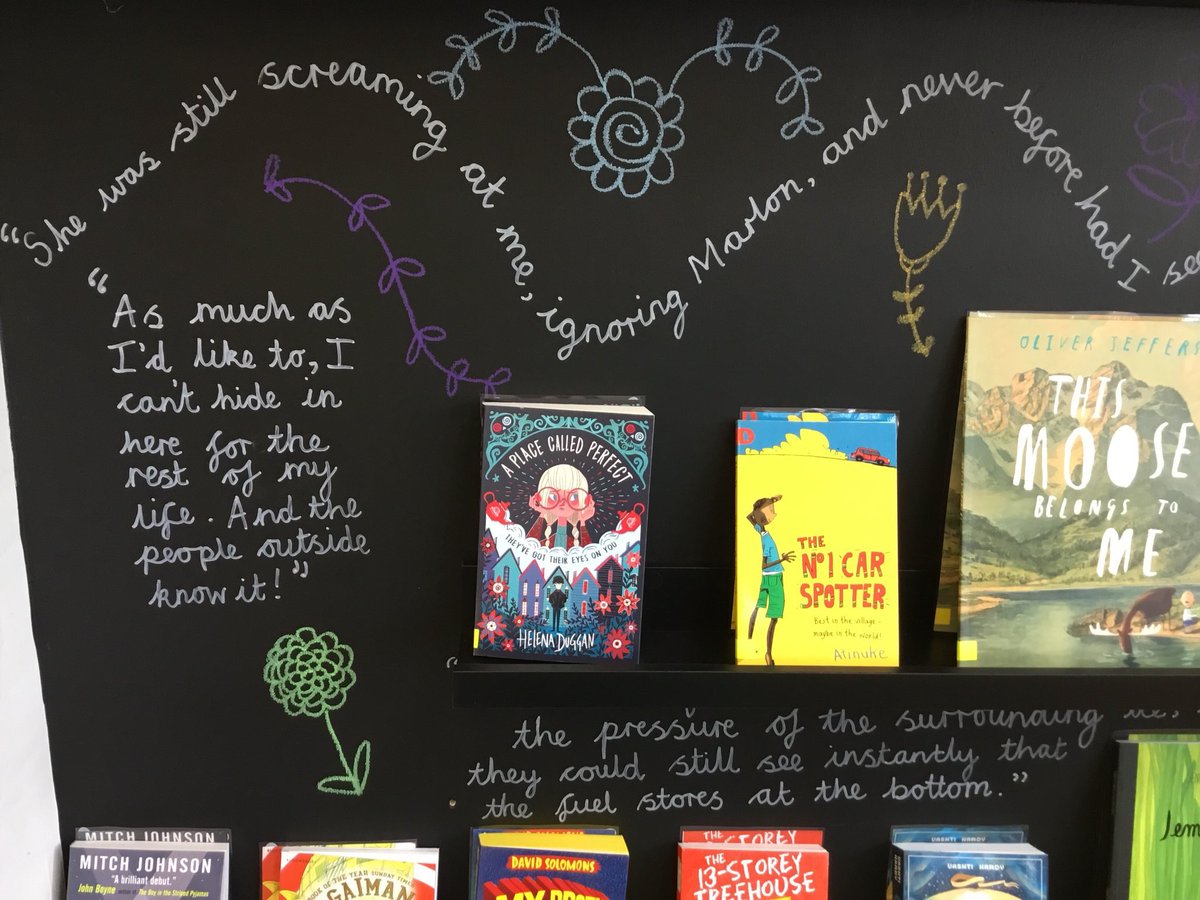 “She was still screaming at me, ignoring Marlon, and never before had I see
“As much as
I'd like to, I
can't hide in
here for the
rest of my
life. And the
people outside
know it!”
A PLACE CALLED PERFECT
THEY'VE GOT THEIR EYES ON YOU
HELENA DUGGAN
THE
No1 CAR
SPOTTER
Best in the village –
maybe in the world!
Atinuke
OLIVER JEFFERS
THIS
MOOSE
BELONGS TO
ME
the pressure of the surrounding
they could still see instantly that
the fuel stores at the bottom.”
MITCH JOHNSON
MITCH JOHNSON
"A brilliant debut."
John Boyne author of The Boy in the Striped Pyjamas
BOOK OF THE YEAR SUNDAY TIMES
GAIMAN
DAVID SOLOMONS
MY
THE 13-STOREY
THE
13-STOREY
TREEHOUSE
VASHTI HARDY
VASHTI HARDY